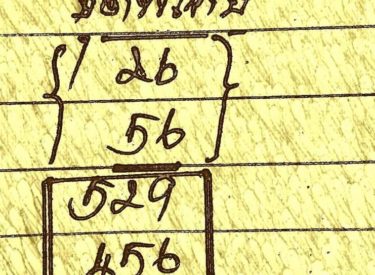 26
56
529
456